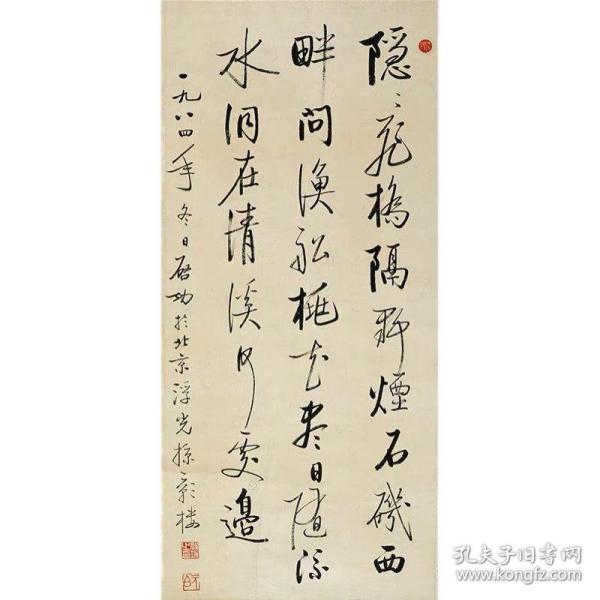 隐〻飛橋隔野煙石磯西
畔问漁船桃花盡日随流
水洞在清溪何處邊
一九八四年冬日启功於北京浮光掠影楼
孔夫子旧书网
www.kongfz.com